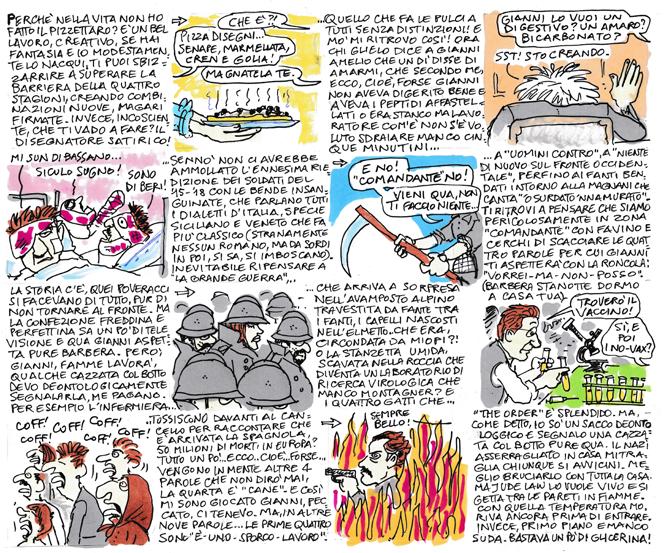 PERCHE' NELLA VITA NON HO
FATTO IL PIZZETTARO? E' UN BEL
LAVORO, CREATIVO, SE HAI
FANTASIA E IO MODESTAMEN-
TE LO NACQUI, TI PUOI SBIZ-
ZARRIRE A SUPERARE LA
BARRIERA DELLA QUATTRO
STAGIONI, CREANDO COMBI-
NAZIONI NUOVE, MAGARI
FIRMATE. INVECE, INCOSCIEN-
TE, CHE TI VADO A FARE? IL DI-
SEGNATORE SATIRICO!
CHE E'?!
PIZZA DISEGNI...
SENAPE, MARMELLATA,
CREN E GOLIA!
MAGNATELA TE.
...QUELLO CHE FA LE PULCI A
TUTTI SENZA DISTINZIONI! E
MO' MI RITROVO COSI'! ORA
CHI GLIELO DICE A GIANNI
AMELIO CHE UN DI' DISSE DI
AMARMI, CHE SECONDO ME,
ECCO, CIOE', FORSE GIANNI
NON AVEVA DIGERITO BENE E
AVEVA I PEPTIDI AFFASTEL-
LATI O ERA STANCO MA LAVO-
RATORE COM'E' NON S'E' VO-
LUTO SDRAIARE MANCO CIN-
QUE MINUTINI...
GIANNI LO VUOI UN
DIGESTIVO? UN AMARO?
BICARBONATO?
SST! STO CREANDO.
MI SUN DI BASSANO...
SICULO SUGNO!
SONO
DI BERI!
...SENNO' NON CI AVREBBE
AMMOLLATO L'ENNESIMA RIE-
DIZIONE DEI SOLDATI DEL
'15-18 CON LE BENDE INSAN-
GUINATE, CHE PARLANO TUTTI
I DIALETTI D'ITALIA, SPECIE
SICILIANO E VENETO CHE FA
PIU' CLASSICO (STRANAMENTE
NESSUN ROMANO, MA DA SORDI
IN POI, SI SA, SI IMBOSCANO).
INEVITABILE RIPENSARE A
"LA GRANDE GUERRA"...
E NO!
"COMANDANTE" NO!
VIENI QUA, NON
TI FACCIO NIENTE...
...A "UOMINI CONTRO", A "NIENTE
DI NUOVO SUL FRONTE OCCIDEN-
TALE", PERFINO AI FANTI BEN-
DATI INTORNO ALLA MAGNANI CHE
CANTA "O SURDATO 'NNAMURATO".
TI RITROVI A PENSARE CHE SIAMO
PERICOLOSAMENTE IN ZONA
"COMANDANTE" CON FAVINO E
CERCHI DI SCACCIARE LE QUAT-
TRO PAROLE PER CUI GIANNI
TI ASPETTERA' CON LA RONCOLA:
"VORREI-MA-NON-POSSO".
(BARBERA STANOTTE DORMO
A CASA TUA).
LA STORIA C'E', QUEI POVERACCI
SI FACEVANO DI TUTTO, PUR DI
NON TORNARE AL FRONTE. MA
LA CONFEZIONE FREDDINA E
PERFETTINA SA UN PO' DI TELE-
VISIONE E QUA GIANNI ASPET-
TA PURE BARBERA. PERO',
GIANNI, FAMME LAVORA',
QUALCHE CAZZATA COL BOTTO
DEVO DEONTOLOGICAMENTE
SEGNALARLA, ME PAGANO.
PER ESEMPIO L'INFERMIERA...
...CHE ARRIVA A SORPRESA
NELL'AVAMPOSTO ALPINO
TRAVESTITA DA FANTE TRA
I FANTI, I CAPELLI NASCOSTI
NELL'ELMETTO. CHE ERA,
CIRCONDATA DA MIOPI?!
O LA STANZETTA UMIDA,
SCAVATA NELLA ROCCIA CHE
DIVENTA UN LABORATORIO DI
RICERCA VIROLOGICA CHE
MANCO MONTAGNER? E
I QUATTRO GATTI CHE...
TROVERO' IL
VACCINO!
SI', E
POI
I NO-VAX?
COFF!
COFF!
COFF!
COFF!
...TOSSISCONO DAVANTI AL CAN-
CELLO PER RACCONTARE CHE
E' ARRIVATA LA SPAGNOLA,
50 MILIONI DI MORTI IN EUROPA?
TUTTO UN PO'... ECCO... CIOE'... FORSE...
VENGONO IN MENTE ALTRE 4
PAROLE CHE NON DIRO' MAI,
LA QUARTA E' "CANE". E COSI'
MI SONO GIOCATO GIANNI, PEC-
CATO, CI TENEVO. MA, IN ALTRE
NOVE PAROLE... LE PRIME QUATTRO
SONO "E'-UNO-SPORCO-LAVORO".
SEMPRE
BELLO!
"THE ORDER" E' SPLENDIDO. MA,
COME DETTO, IO SO' UN SACCO DEONTO-
LOGICO E SEGNALO UNA CAZZA-
TA COL BOTTO PURE QUA. IL NAZI
ASSERRAGLIATO IN CASA MITRA-
GLIA CHIUNQUE SI AVVICINI. ME-
GLIO BRUCIARLO CON TUTTA LA CASA.
MA JUDE LAW LO VUOLE VIVO E SI
GETTA TRA LE PARETI IN FIAMME.
CON QUELLA TEMPERATURA MO-
RIVA ANCORA PRIMA DI ENTRARE.
INVECE, PRIMO PIANO E MANCO
SUDA. BASTAVA UN PO' DI GLICERINA!